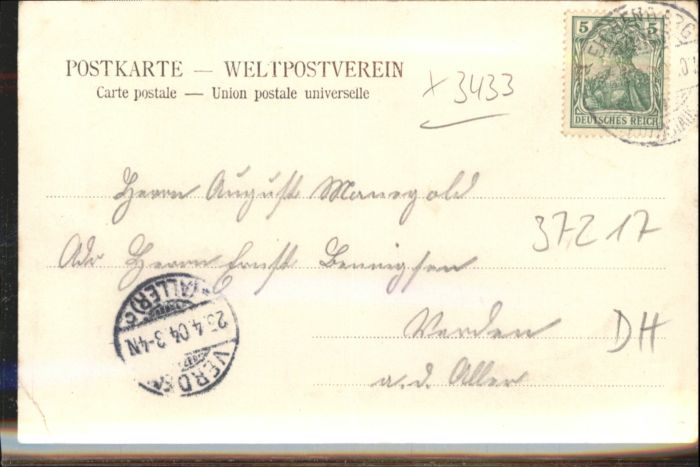 POSTKARTE — WELTPOSTVEREIN
Carte postale — Union postale universelle
x 3433
5 5
DEUTSCHES REICH
Herrn August Manegold
37217
Adr Herrn Ernst Bennigsen
Verden
DH
a. d. Aller
VERDEN
23.4.04.3-4N
(ALLER)